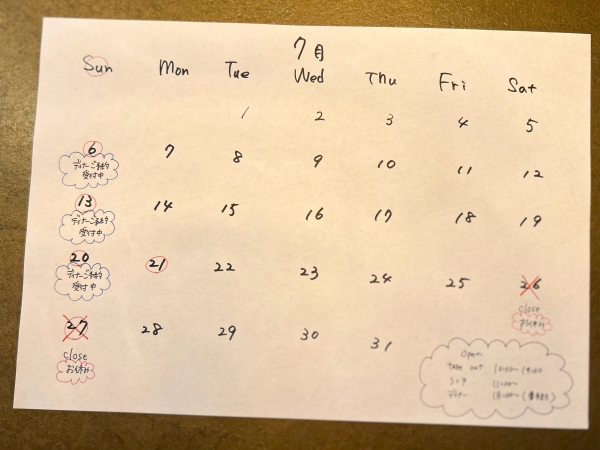 7月
Sun Mon Tue Wed Thu Fri Sat
1 2 3 4 5
6 7 8 9 10 11 12
ディナーご予約
受付中
13 14 15 16 17 18 19
ディナーご予約
受付中
20 21 22 23 24 25 26
ディナーご予約
受付中
close
お休み
27 28 29 30 31
close
お休み
Open
take out
ストア 11:00~
ディナー 18:00~